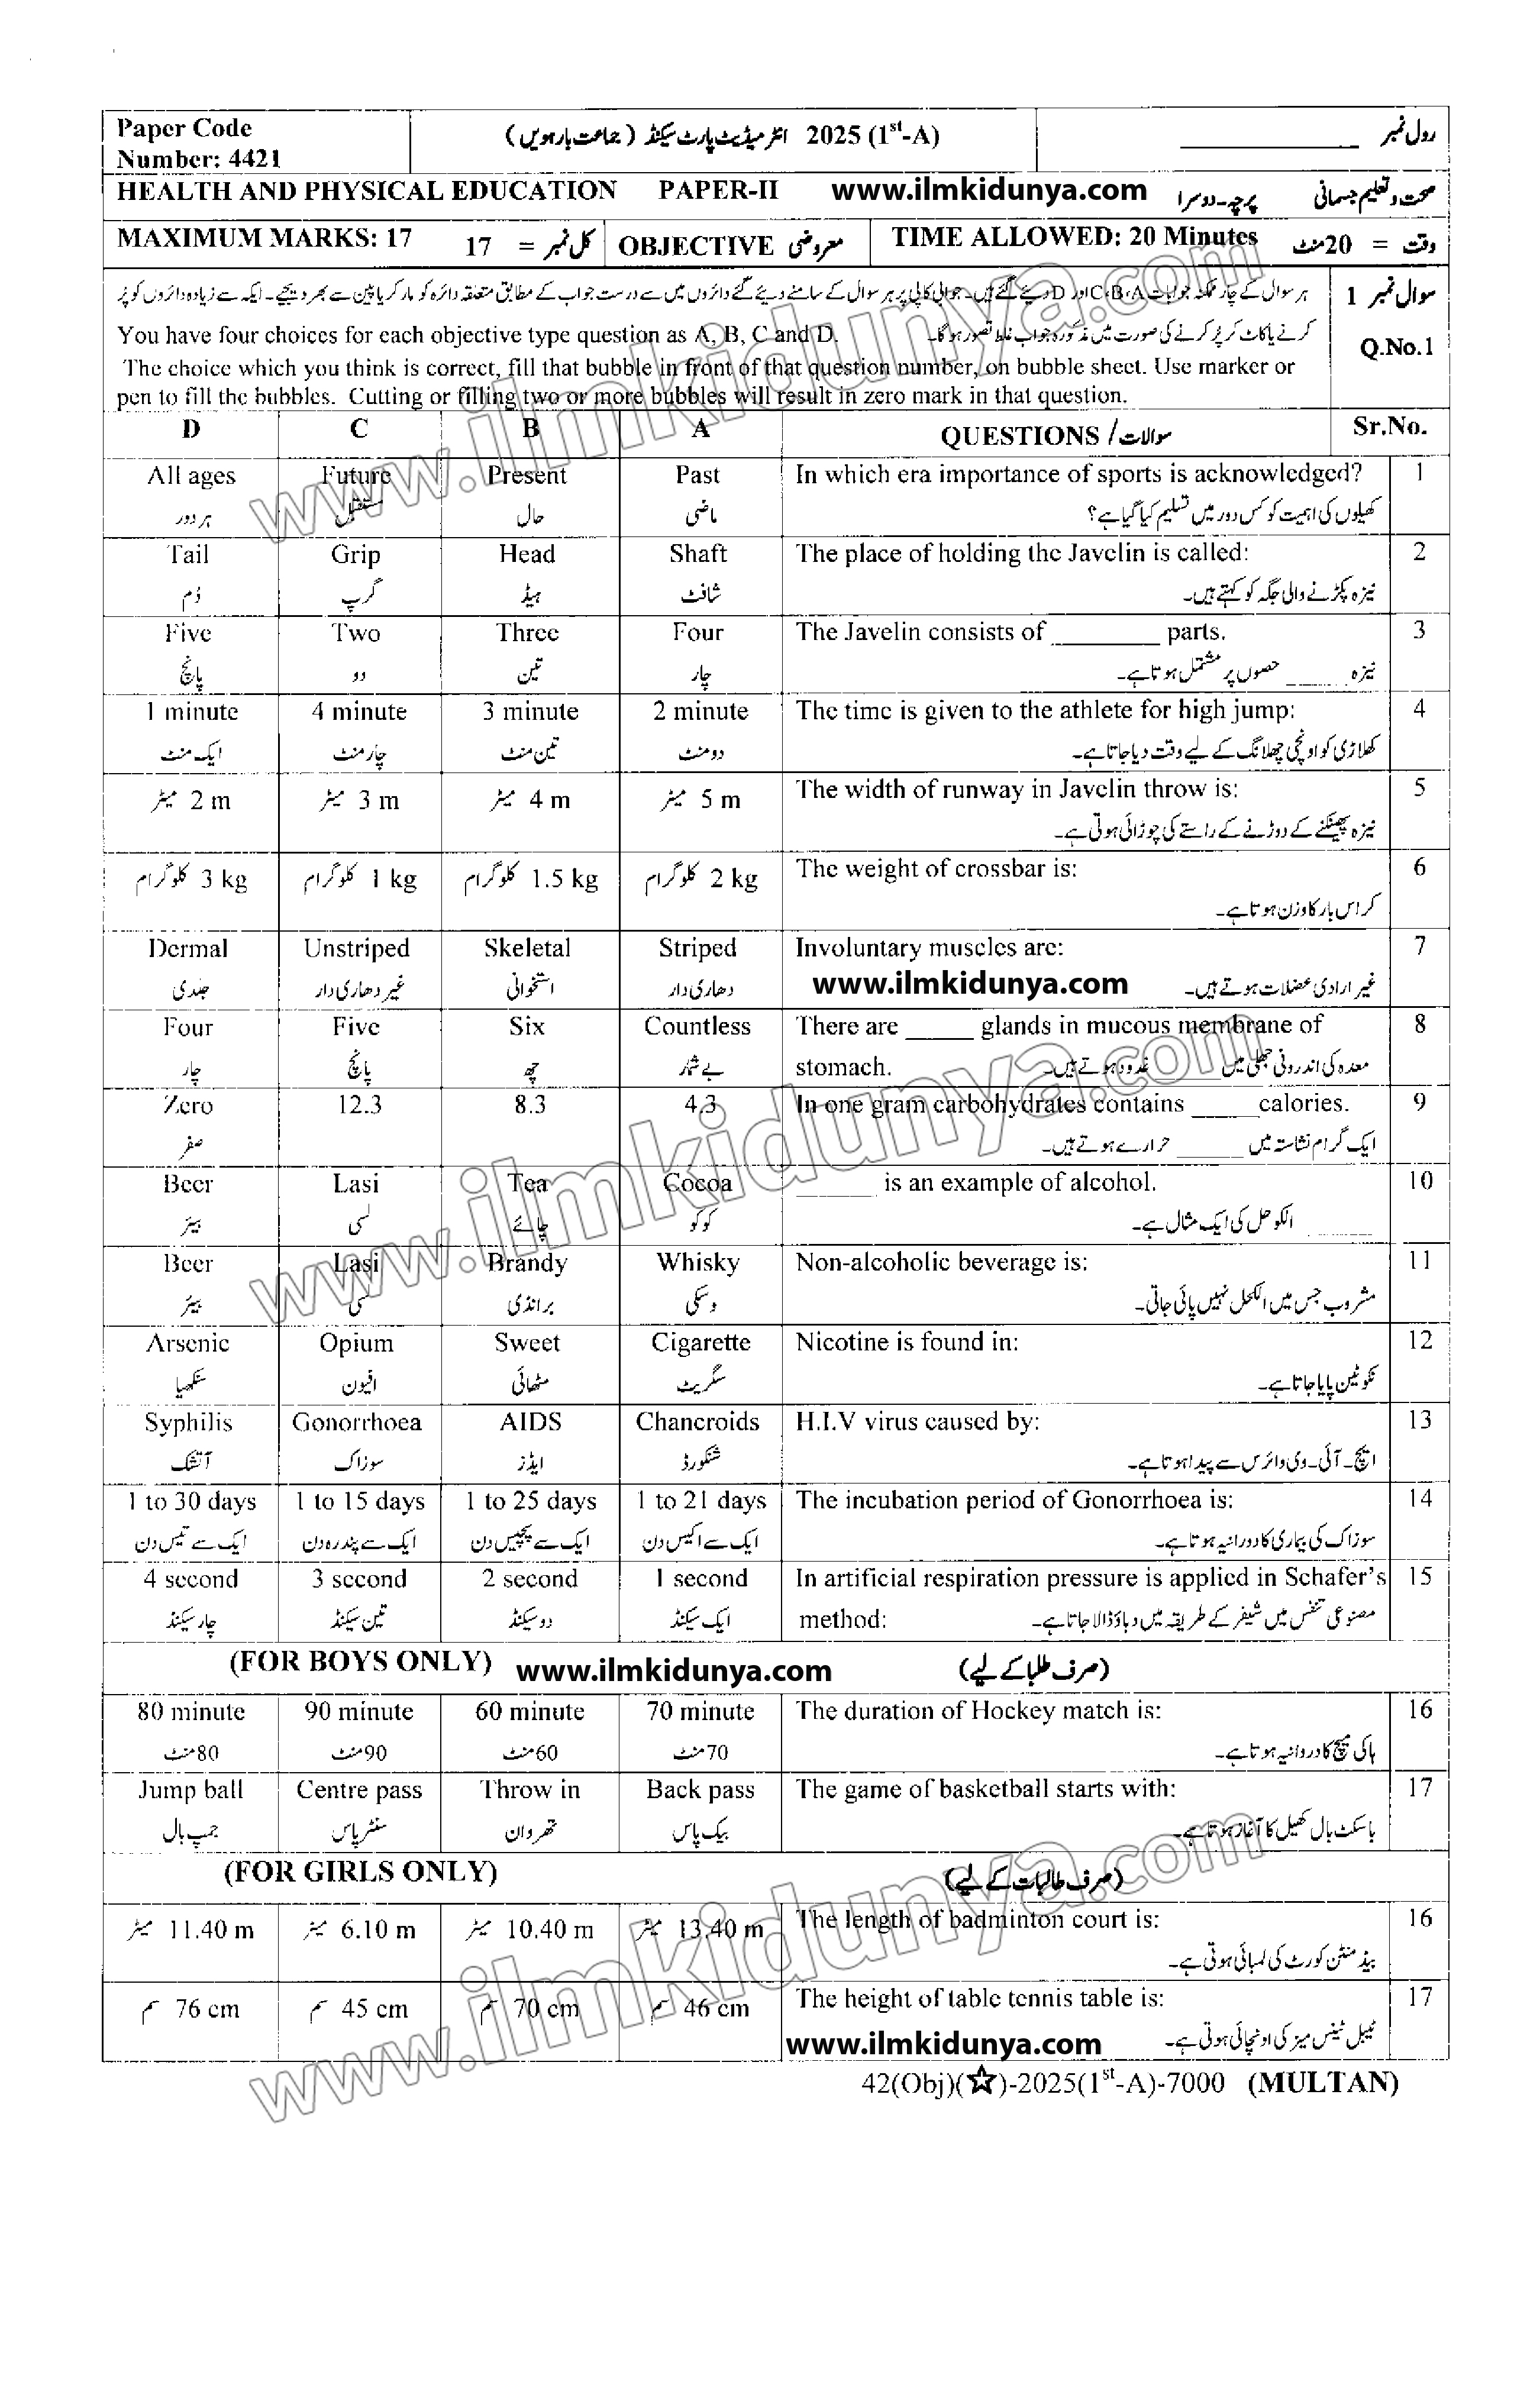 Paper Code
Number: 4421
2025 (1st-A) انٹرمیڈیٹ پارٹ سیکنڈ (جماعت بارہویں)
رول نمبر ____________
HEALTH AND PHYSICAL EDUCATION PAPER-II www.ilmkidunya.com پرچہ-دوسرا صحت و تعلیم جسمانی
MAXIMUM MARKS: 17 کل نمبر = 17 OBJECTIVE معروضی TIME ALLOWED: 20 Minutes وقت = 20 منٹ
سوال نمبر 1 ہر سوال کے چار ممکنہ جوابات A، B، C اور D دیئے گئے ہیں۔ جوابی کاپی پر ہر سوال کے سامنے دیئے گئے دائروں میں سے درست جواب کے مطابق متعلقہ دائرہ کو مارکر یا پین سے بھر دیجئے۔ ایک سے زیادہ دائروں کو پُر
کرنے یا کاٹ کر پُر کرنے کی صورت میں مذکورہ جواب غلط تصور ہو گا۔
You have four choices for each objective type question as A, B, C and D. Q.No.1
The choice which you think is correct, fill that bubble in front of that question number, on bubble sheet. Use marker or
pen to fill the bubbles. Cutting or filling two or more bubbles will result in zero mark in that question.
D C B A QUESTIONS / سوالات Sr.No.
All ages Future Present Past In which era importance of sports is acknowledged? 1
ہر دور مستقبل حال ماضی کھیلوں کی اہمیت کو کس دور میں تسلیم کیا گیا ہے؟
Tail Grip Head Shaft The place of holding the Javelin is called: 2
دُم گرپ ہیڈ شافٹ نیزہ پکڑنے والی جگہ کو کہتے ہیں۔
Five Two Three Four The Javelin consists of ________ parts. 3
پانچ دو تین چار نیزہ ______ حصوں پر مشتمل ہوتا ہے۔
1 minute 4 minute 3 minute 2 minute The time is given to the athlete for high jump: 4
ایک منٹ چار منٹ تین منٹ دو منٹ کھلاڑی کو اونچی چھلانگ کے لیے وقت دیا جاتا ہے۔
2 m میٹر 3 m میٹر 4 m میٹر 5 m میٹر The width of runway in Javelin throw is: 5
نیزہ پھینکنے کے دوڑنے کے راستے کی چوڑائی ہوتی ہے۔
3 kg کلوگرام 1 kg کلوگرام 1.5 kg کلوگرام 2 kg کلوگرام The weight of crossbar is: 6
کراس بار کا وزن ہوتا ہے۔
Dermal Unstriped Skeletal Striped Involuntary muscles are: 7
جلدی غیر دھاری دار استخوانی دھاری دار www.ilmkidunya.com غیر ارادی عضلات ہوتے ہیں۔
Four Five Six Countless There are _____ glands in mucous membrane of 8
چار پانچ چھ بے شمار stomach. معدہ کی اندرونی جھلی میں ______ غدود ہوتے ہیں۔
Zero 12.3 8.3 4.3 In one gram carbohydrates contains _____ calories. 9
صفر ایک گرام نشاستہ میں _____ حرارے ہوتے ہیں۔
Beer Lasi Tea Cocoa ________ is an example of alcohol. 10
بیئر لسی چائے کوکو _____ الکوحل کی ایک مثال ہے۔
Beer Lasi Brandy Whisky Non-alcoholic beverage is: 11
بیئر لسی برانڈی وسکی مشروب جس میں الکحل نہیں پائی جاتی۔
Arsenic Opium Sweet Cigarette Nicotine is found in: 12
سنکھیا افیون مٹھائی سگریٹ نکوٹین پایا جاتا ہے۔
Syphilis Gonorrhoea AIDS Chancroids H.I.V virus caused by: 13
آتشک سوزاک ایڈز شنکورڈ ایچ۔آئی۔وی وائرس سے پیدا ہوتا ہے۔
1 to 30 days 1 to 15 days 1 to 25 days 1 to 21 days The incubation period of Gonorrhoea is: 14
ایک سے تیس دن ایک سے پندرہ دن ایک سے پچیس دن ایک سے اکیس دن سوزاک کی بیماری کا دورانیہ ہوتا ہے۔
4 second 3 second 2 second 1 second In artificial respiration pressure is applied in Schafer's 15
چار سیکنڈ تین سیکنڈ دو سیکنڈ ایک سیکنڈ method: مصنوعی تنفس میں شیفر کے طریقہ میں دباؤ ڈالا جاتا ہے۔
(FOR BOYS ONLY) www.ilmkidunya.com (صرف طلبا کے لیے)
80 minute 90 minute 60 minute 70 minute The duration of Hockey match is: 16
80منٹ 90منٹ 60منٹ 70منٹ ہاکی میچ کا دروانیہ ہوتا ہے۔
Jump ball Centre pass Throw in Back pass The game of basketball starts with: 17
جمپ بال سنٹر پاس تھر وان بیک پاس باسکٹ بال کھیل کا آغاز ہوتا ہے۔
(FOR GIRLS ONLY) (صرف طالبات کے لیے)
11.40 m میٹر 6.10 m میٹر 10.40 m میٹر 13.40 m میٹر The length of badminton court is: 16
بیڈ منٹن کورٹ کی لمبائی ہوتی ہے۔
76 cm سم 45 cm سم 70 cm سم 46 cm سم The height of table tennis table is: 17
www.ilmkidunya.com ٹیبل ٹینس میز کی اونچائی ہوتی ہے۔
42(Obj)(☆)-2025(1st-A)-7000 (MULTAN)
www.ilmkidunya.com
www.ilmkidunya.com
www.ilmkidunya.com